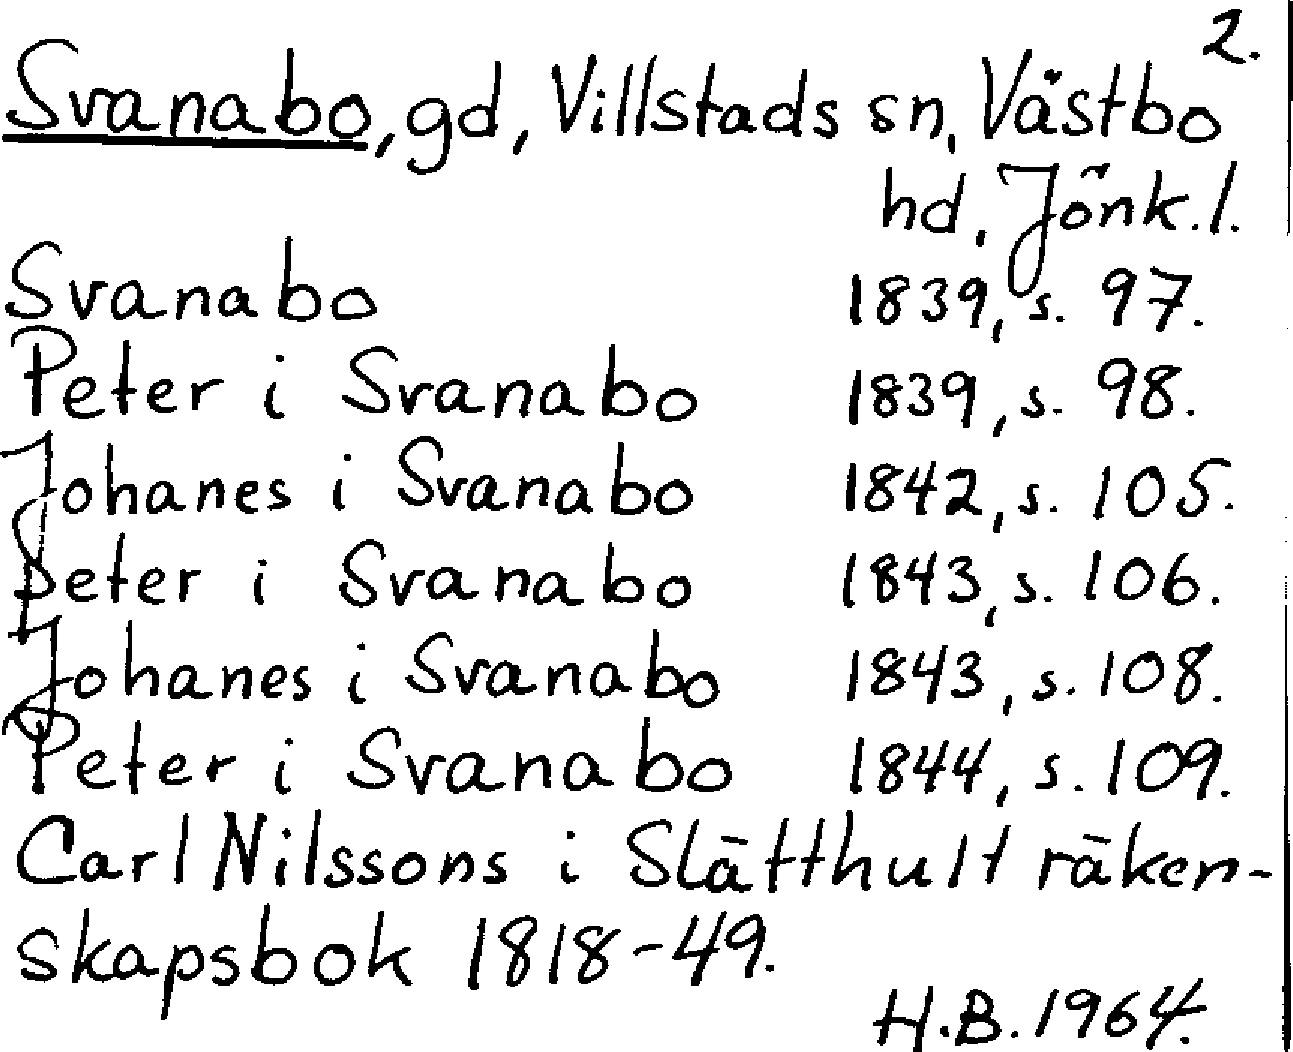 2.
Svanabo, gd, Villstads sn, Västbo
hd, Jönk. l.
Svanabo 1839, s. 97.
Peter i Svanabo 1839, s. 98.
Johanes i Svanabo 1842, s. 105.
Peter i Svanabo 1843, s. 106.
Johanes i Svanabo 1843, s. 108.
Peter i Svanabo 1844, s. 109.
Carl Nilssons i Slätthult räken-
skapsbok 1818-49.
H.B. 1964.